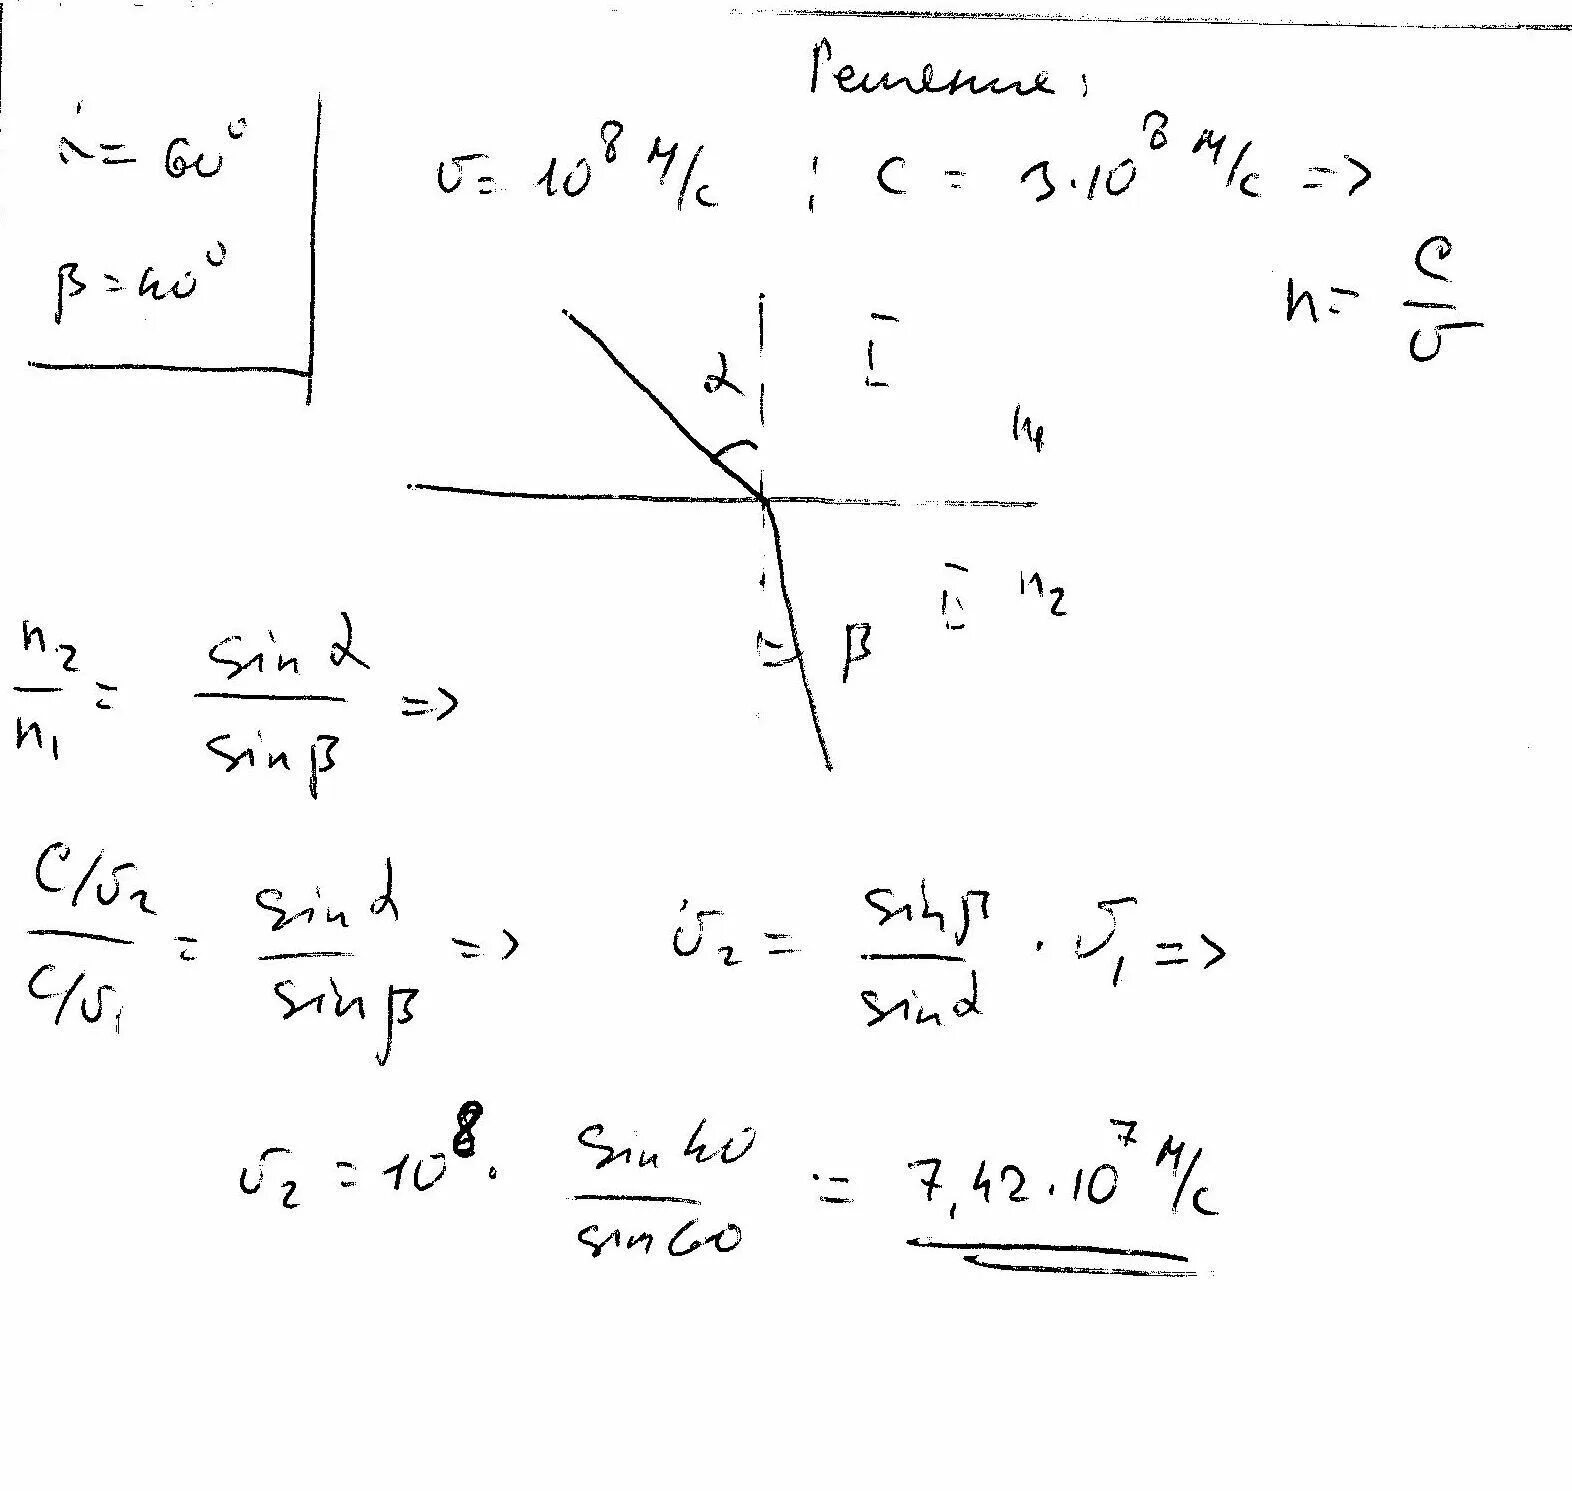 Решение:
α = 60°
υ = 10⁸ м/с ; c = 3·10⁸ м/с =>
β = 40°
n = c/υ
α I
n₁
II n₂
β
n₂/n₁ = sin α/sin β =>
(c/υ₂)/(c/υ₁) = sin α/sin β => υ₂ = sin β/sin α · υ₁ =>
υ₂ = 10⁸ · sin 40/sin 60 = 7,42·10⁷ м/с